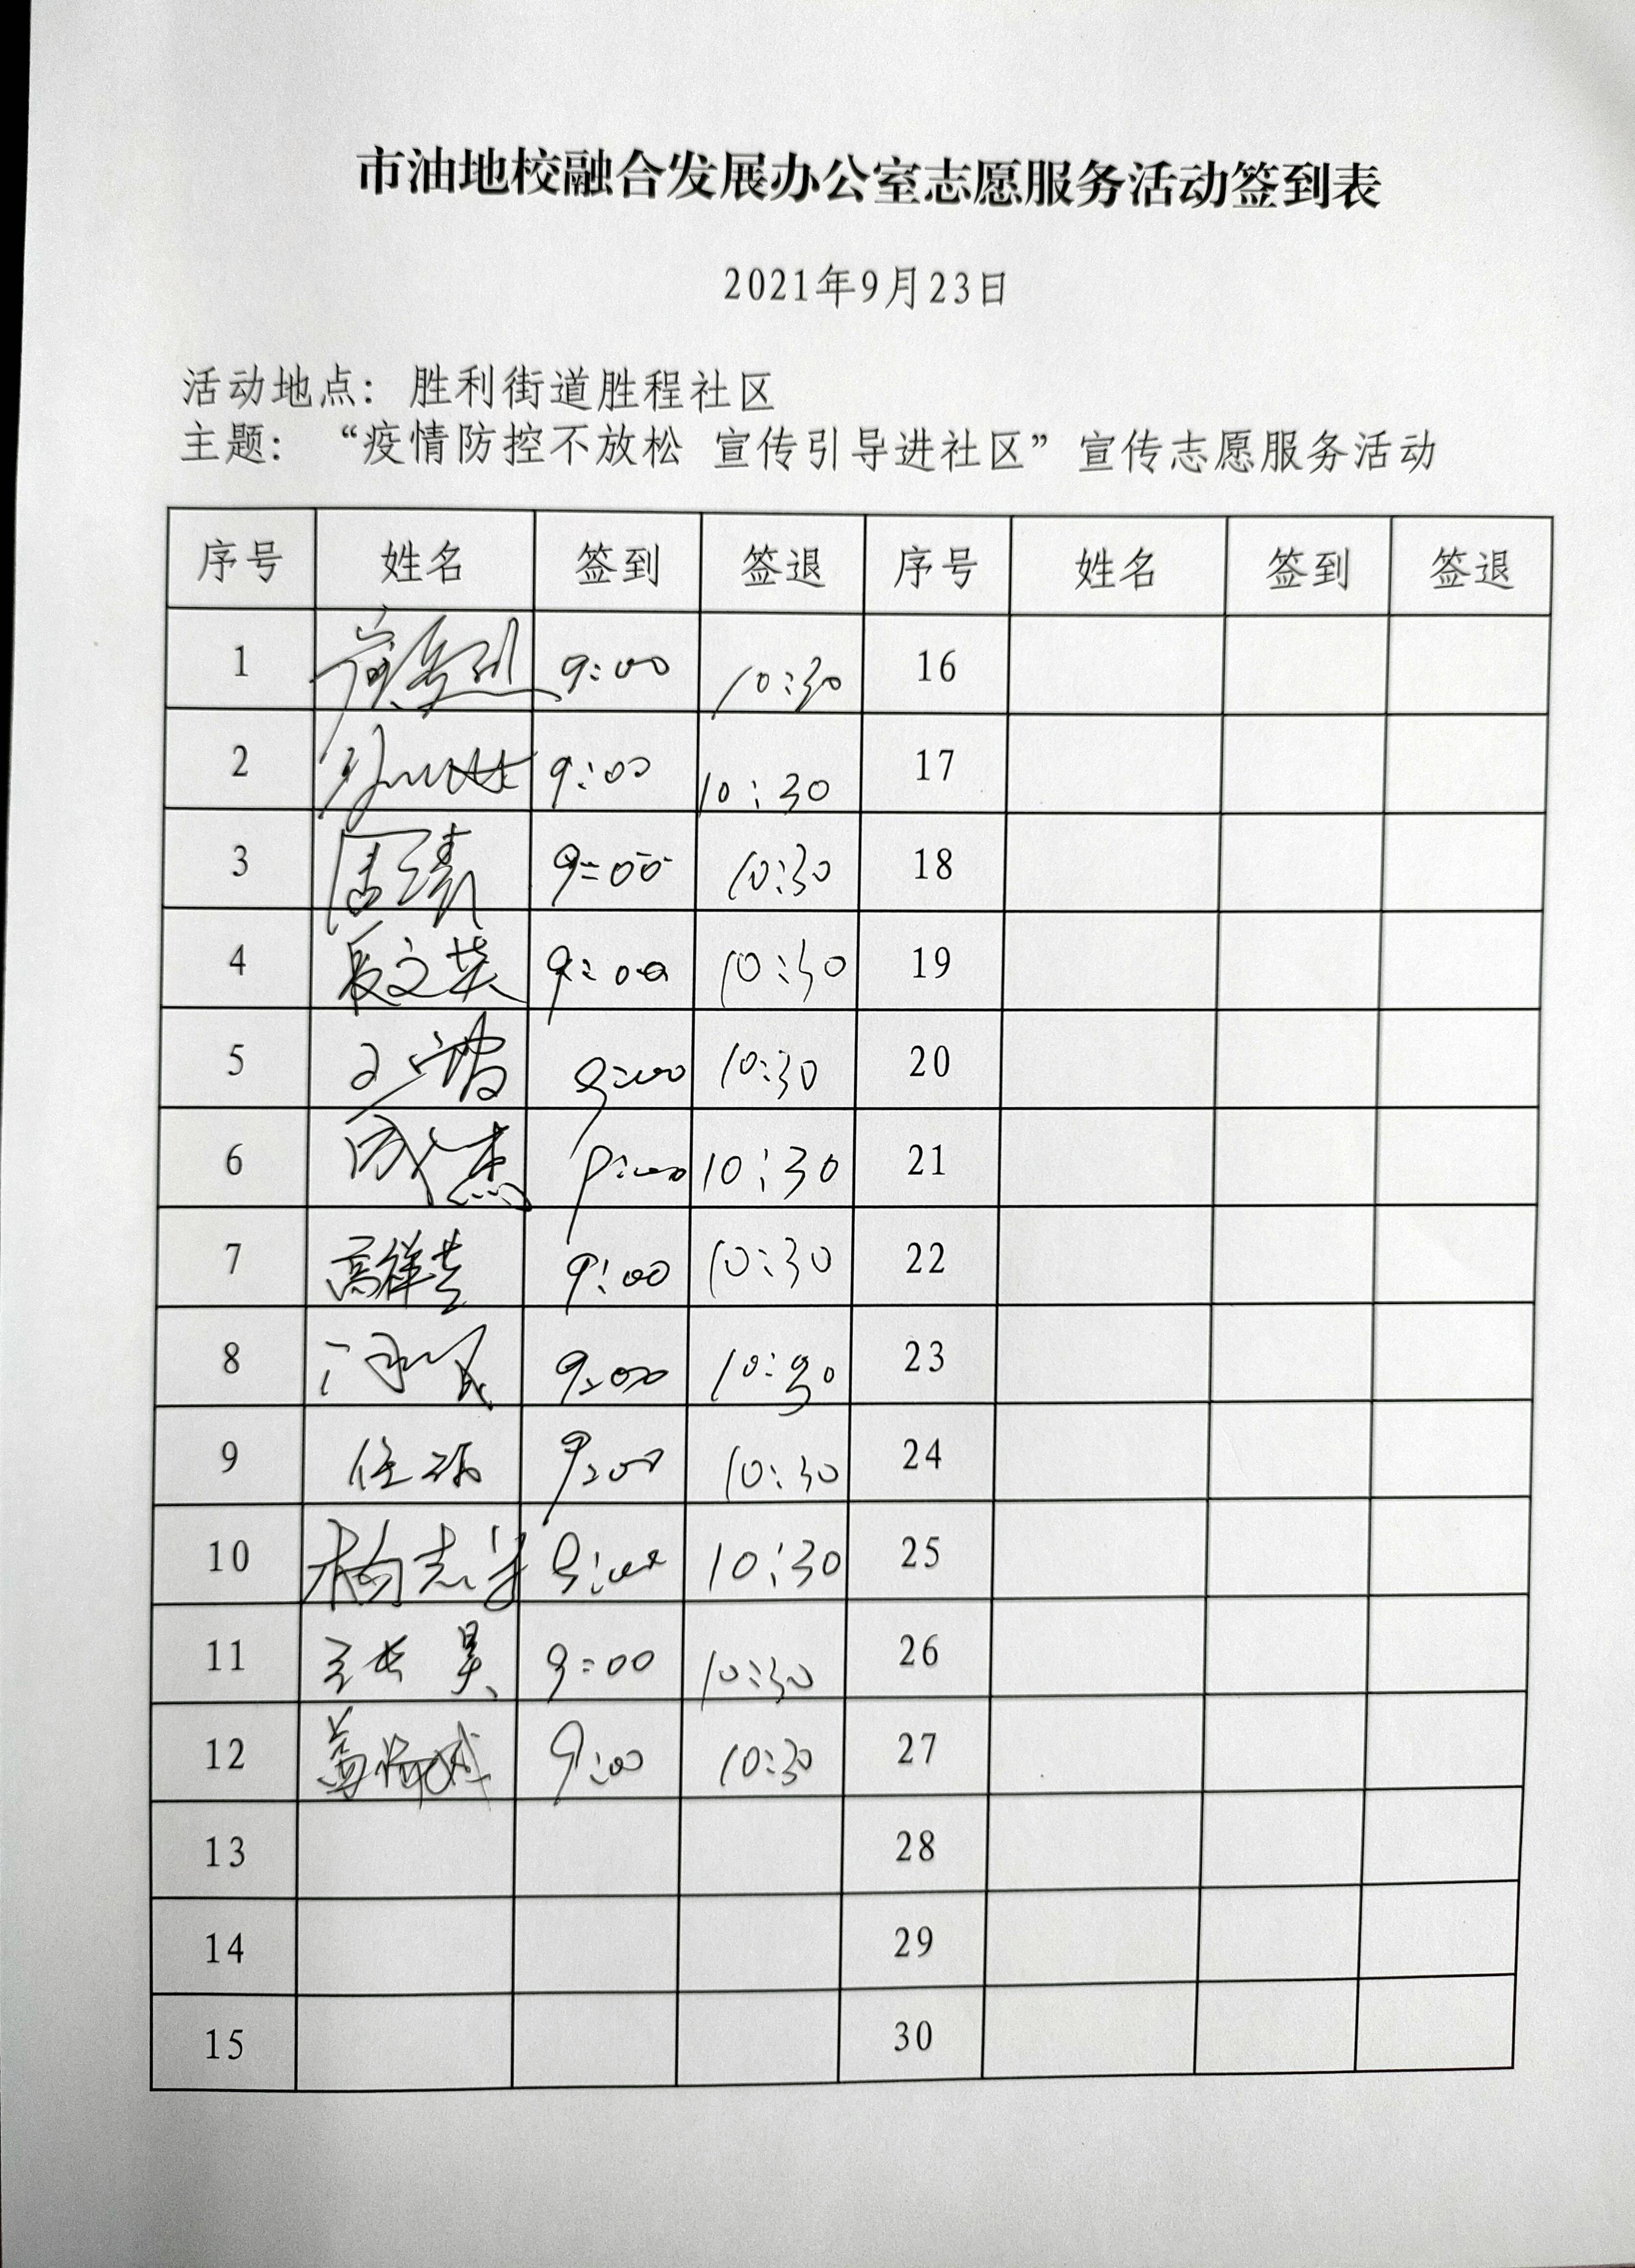 市油地校融合发展办公室志愿服务活动签到表
2021年9月23日
活动地点：胜利街道胜程社区
主题：“疫情防控不放松 宣传引导进社区”宣传志愿服务活动
序号 姓名 签到 签退 序号 姓名 签到 签退
1 9:00 10:30 16
2 9:00 10:30 17
3 9:00 10:30 18
4 夏文英 9:00 10:30 19
5 9:00 10:30 20
6 成杰 9:00 10:30 21
7 高祥芸 9:00 10:30 22
8 9:00 10:30 23
9 9:00 10:30 24
10 杨志 9:00 10:30 25
11 9:00 10:30 26
12 9:00 10:30 27
13 28
14 29
15 30